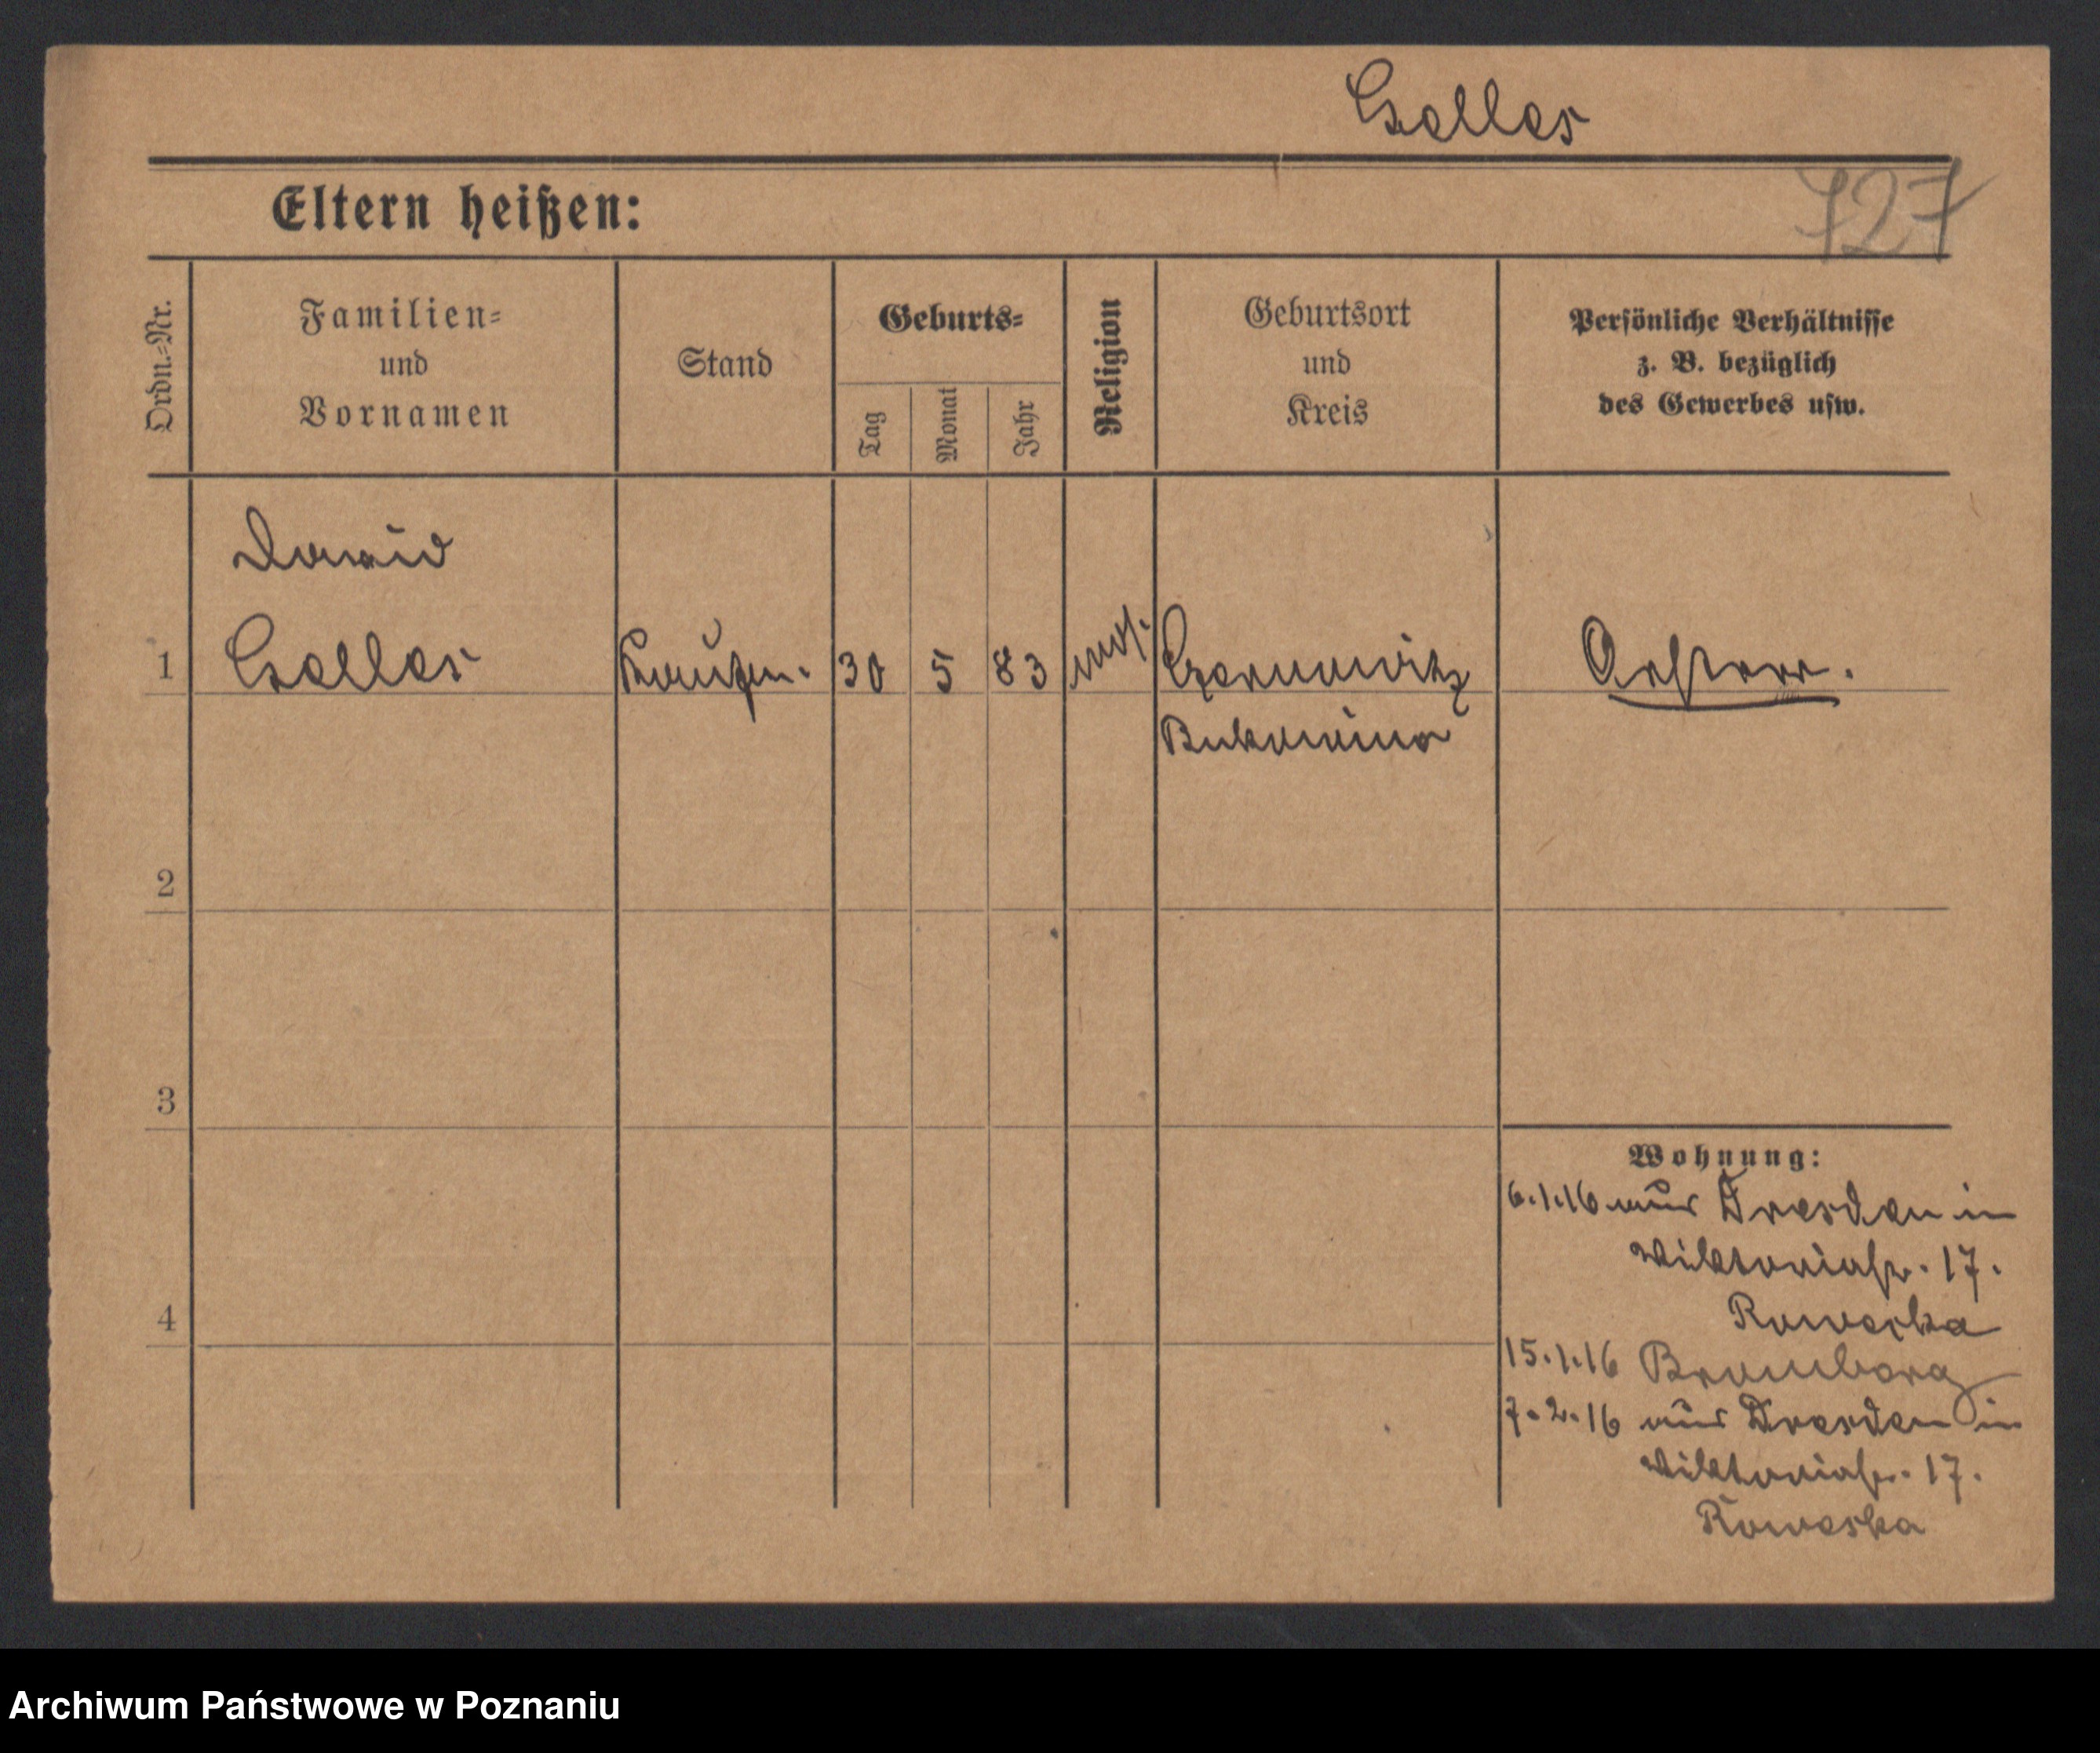 Gelles
727
Eltern heißen:
Ordn.-Nr.
Familien-
und
Vornamen
Stand
Geburts-
Tag
Monat
Jahr
Religion
Geburtsort
und
Kreis
Persönliche Verhältnisse
z. B. bezüglich
des Gewerbes usw.
Dawid
1 Gelles Kaufm. 30 5 83 mos. Czernowitz Oesterr.
Bukowina
2
3
Wohnung:
6.1.16 aus Dresden in
Viktoriastr. 17.
4
15.1.16 Bromberg
7.2.16 aus Dresden in
Viktoriastr. 17.
Archiwum Państwowe w Poznaniu